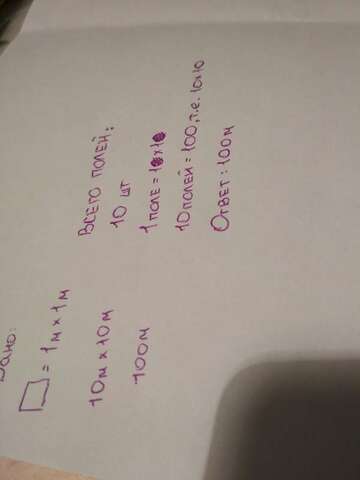 Дано:
= 1м х 1м
10м х 10м
100м
ВСЕГО ПОЛЕЙ:
10 шт
1 ПОЛЕ = 10х10
10 ПОЛЕЙ = 100, т.е. 10х10
ОТВЕТ: 100м